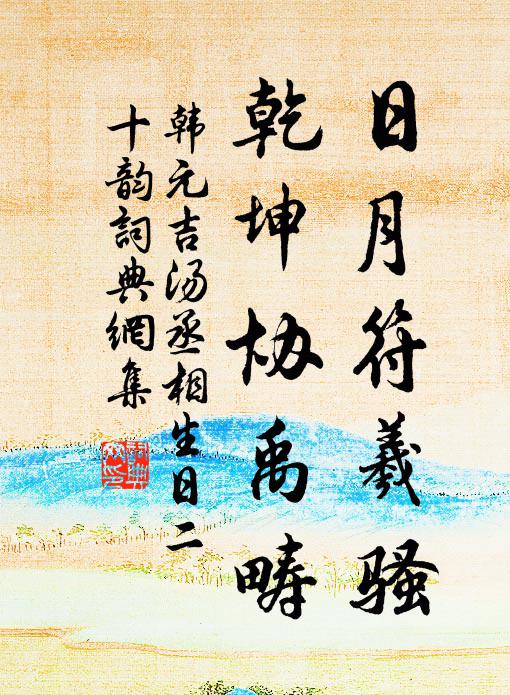 日月符羲骚
乾坤协禹畴
韩元吉汤丞相生日二
十韵词典網集